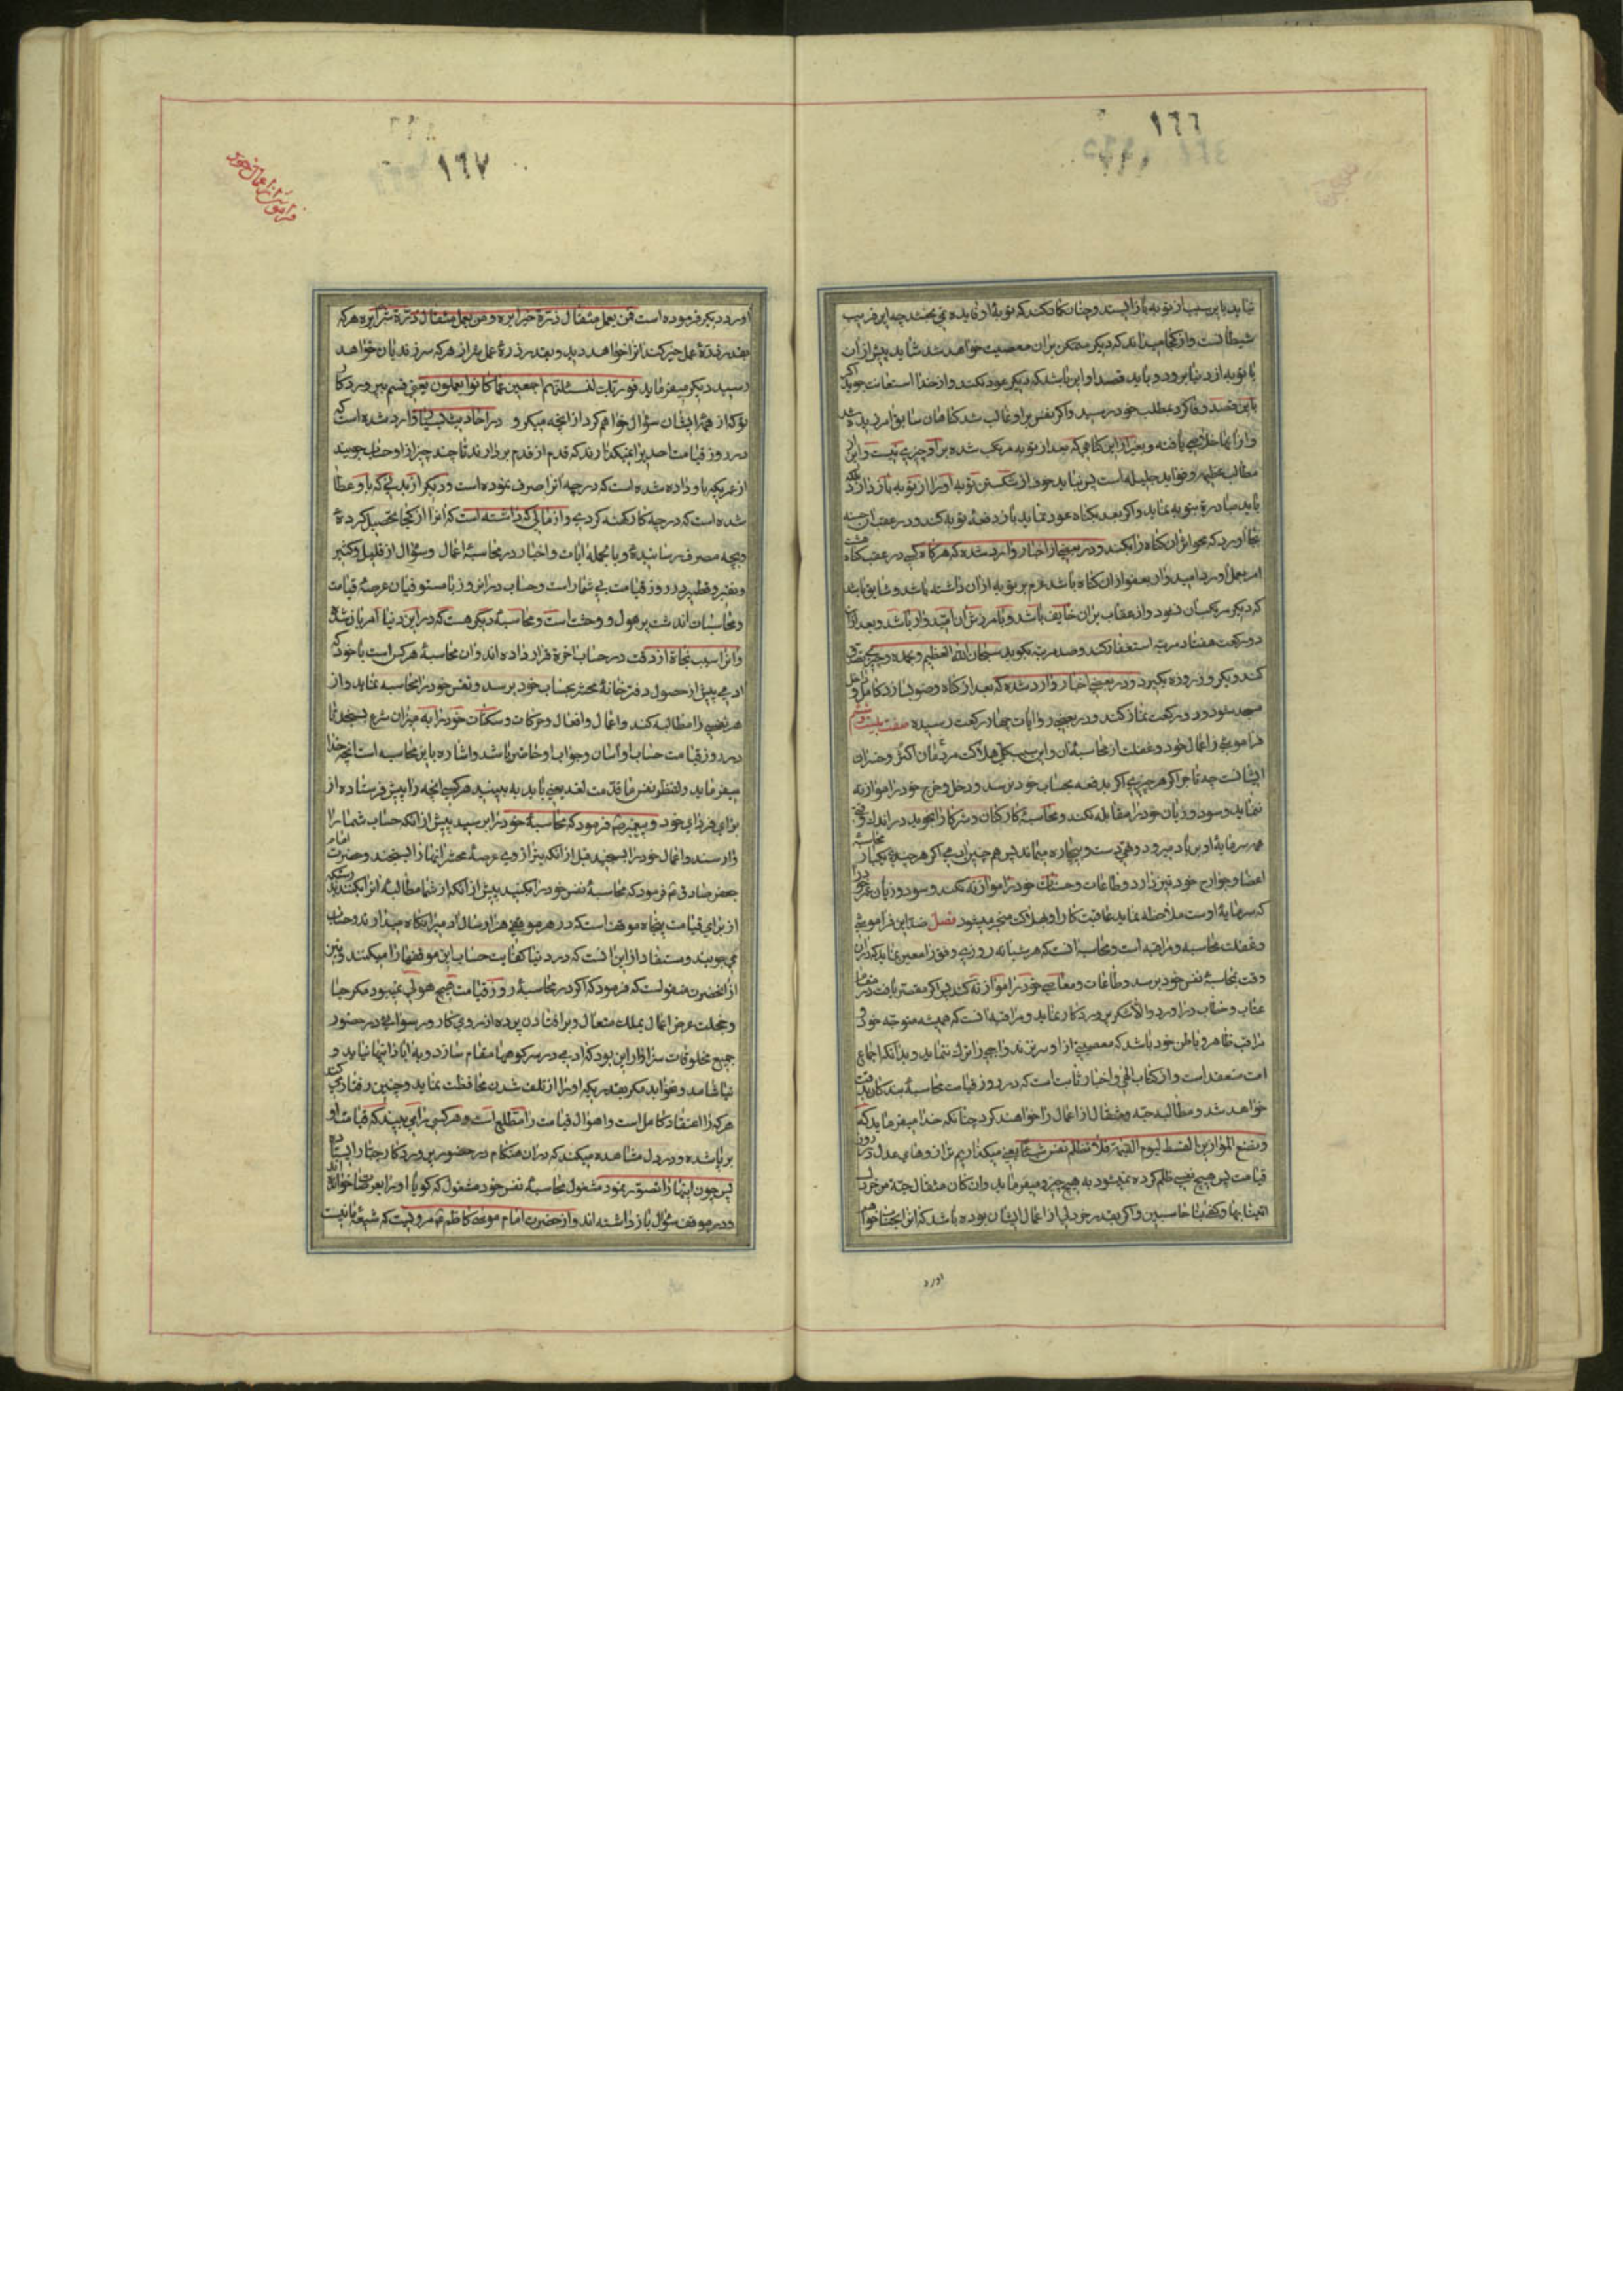 ١٦٦
نماید باین سبب از توبه باز ایستد و چنان کمان کند که توبهٔ او فایده نمی بخشد چه این فریب
شیطانست و از کجا میداند که دیکر متمکن بران معصیت خواهد شد شاید پیش از آن
با توبه از دنیا برود و باید قصد او این باشد که دیکر عود نکند و از خدا استعانت جوید اکر
باین قصد وفا کرد بمطلب خود رسید و اکر نفس بر او غالب شد کناهان سابق امرزیده شد
و از آنها خلاصی یافته و بغیر از این کناهی که بعد از توبه مرتکب شده بر او چیزی نیست و این از
مطالب عظیمه و فواید جلیله است پس نباید خوف از شکستن توبه او را از توبه باز دارد بلکه
باید مبادرت بتوبه نماید و اکر بعد بکناه عود نماید باز دفعهٔ توبه کند و در عقب ان حسنه
بجا اورد که محو اثر ان کناه را بکند و در بعضی از اخبار وارد شده که هرکاه کسی در عقب کناه هشت
امر بعمل اورد امید وار بعفو از ان کناه باشد عزم بر توبه از ان داشته باشد و شایق باشد
که دیکر مرتکب ان نشود و از عقاب بران خایف باشد و بآمرزش ان امیدوار باشد و بعد از ان
دو رکعت هفتاد مرتبه استغفار کند و صد مرتبه بکوید سبحان الله العظیم و بحمده و چیزی تصدق
کند و یکروز روزه بکیرد و در بعضی اخبار وارد شده که بعد از کناه وضو بسازد کامل و داخل
مسجد شود و دو رکعت نماز کند و در بعضی روایات چهار رکعت رسیده صفت بیست و ششم
فراموشی از اعمال خود و غفلت از محاسبهٔ ان و این سبب کلی هلاکت مردمان اکثر و خسران
ایشانست چه تاجر اکر هر چیزی اکر بدفعه بحساب خود نرسد و دخل و خرج خود را موازنه
ننماید و سود و زیان خود را مقابله نکند و محاسبهٔ کارکنان و شرکا را نجوید در اندک وقتی
همه سرمایهٔ او بر باد میرود و تهی دست و بیچاره میماند پس همچنین ادمی اکر هر چند یکبار محاسبهٔ
اعضا و جوارح خود نیز دارد و طاعات و حسنات خود را موازنه نکند و سود و زیان عمر خود را
که سرمایهٔ اوست ملاحظه ننماید عاقبت کار او بهلاکت منجر میشود فصل ضد این فراموشی
و غفلت محاسبه و مراقبه است و محاسبه انست که هر شبانه روزی وقتی را معین نماید که دران
وقت بمحاسبهٔ نفس خود برسد و طاعات و معاصی خود را موازنه کند پس اکر مقصر یافت در مقام
عتاب و خطاب در اورد و الا شکر پروردکار نماید و مراقبه انست که همیشه متوجه خود و
مراقب ظاهر و باطن خود باشد که معصیتی از او سر نزند و واجبی را ترک ننماید و بدانکه اجماع
امت منعقد است و از کتاب الهی و اخبار ثابت است که در روز قیامت محاسبهٔ بندکان بدقت
خواهد شد و مطالبه حبه و مثقال از اعمال را خواهند کرد چنانکه خدا میفرماید که
و نضع الموازین القسط لیوم القیمة فلا تظلم نفس شیئا یعنی میکذاریم ترازوهای عدل در روز
قیامت پس هیچ نفسی ظلم کرده نمیشود به هیچ چیز و میفرماید و ان کان مثقال حبة من خردل
اتینا بها و کفی بنا حاسبین و اکر بقدر خردلی از اعمال ایشان بوده باشد که انرا بحساب خواهم
اورد
١٦٧
فراموشی از اعمال خود
اورد دیکر فرموده است فمن یعمل مثقال ذرة خیرا یره و من یعمل مثقال ذرة شرا یره هر که
بقدر ذرهٔ عمل خیر کند انرا خواهد دید و بقدر ذرهٔ عمل شر از هر که سر زند بان خواهد
رسید دیکر میفرماید فوربک لنسئلنهم اجمعین عما کانوا یعملون یعنی قسم بپروردکار
تو که از همهٔ ایشان سؤال خواهم کرد از انچه میکردند و در احادیث بسیار وارد شده است که
در روز قیامت احدی را نمیکذارند که قدم از قدم بردارند تا چند چیز از او حساب جویند
از عمریکه باو داده شده است که در چه انرا صرف نموده است و دیکر از بدنی که باو عطا
شده است که در چه کار کهنه کرده و از مالی که داشته است که انرا از کجا تحصیل کرده
و بچه مصرف رسانیدهٔ و بالجمله ایات و اخبار در محاسبهٔ اعمال و سؤال از قلیل و کثیر
و نقیر و قطمیر در روز قیامت بی شمار است و حساب در انروز با مستوفیان عرصهٔ قیامت
و محاسبان اندشت پر هول و وحشت است و محاسبهٔ دیکری هست که در این دنیا امر بان شده
و انرا سبب نجاة از دقت در حساب اخرة قرار داده اند و ان محاسبهٔ هر کس است با خود که
ادمی پیش از حصول دفتر خانهٔ محشر بحساب خود برسد و نفس خود را محاسبه نماید و از
هر نفسی را مطالبه کند و اعمال و افعال و حرکات و سکنات خود را به میزان شرع بسنجد تا
در روز قیامت حساب او اسان و جواب او حاضر باشد و اشاره باین محاسبه است انچه خدا
میفرماید و لتنظر نفس ما قدمت لغد یعنی باید به بینید هر کسی انچه را پیش فرستاده از
برای فردای خود و پیغمبر ص فرمود که محاسبهٔ خود را برسید پیش از انکه حساب شما را
وارسند و اعمال خود را بسنجید قبل از انکه در عرصهٔ محشر انها را بسنجند و حضرت امام
جعفر صادق ع فرمود که محاسبهٔ نفس خود را بکنید پیش از انکه از شما مطالبهٔ انرا بکنند بدرستیکه
از برای قیامت پنجاه موقف است که در هر موقفی هزار سال ادمیرا نکاه میدارند و حساب
می جویند و مستفاد از این انست که در دنیا کفایت حساب این موقفها را میکنند و نیز
از انحضرت منقولست که فرمود که اکر در محاسبهٔ روز قیامت هیچ هولی نمیبود مکر حیا
و خجلت عرض اعمال بملک متعال و بر افتادن پرده از روی کار و رسوائی در حضور
جمیع مخلوقات سزاوار این بود که ادمی در سر کوهها مقام سازد و به ابادانیها نیاید و
نیاشامد و نخوابد مکر بقدریکه او را از تلف شدن محافظت نماید و چنین رفتار می کند
هرکه را اعتقاد کامل است و اهوال قیامت را مطلع است و هر کسی را می بیند که قیامت او
برپا شده و در دل مشاهده میکند که دران هنکام در حضور پروردکار جبار ایستاده
پس چون اینها را تصور نمود مشغول محاسبهٔ نفس خود مشغول که کویا او را بعرصات خوانده اند
و در موقف سؤال باز داشته اند و از حضرت امام موسی کاظم ع مرویست که شیعهٔ ما نیست